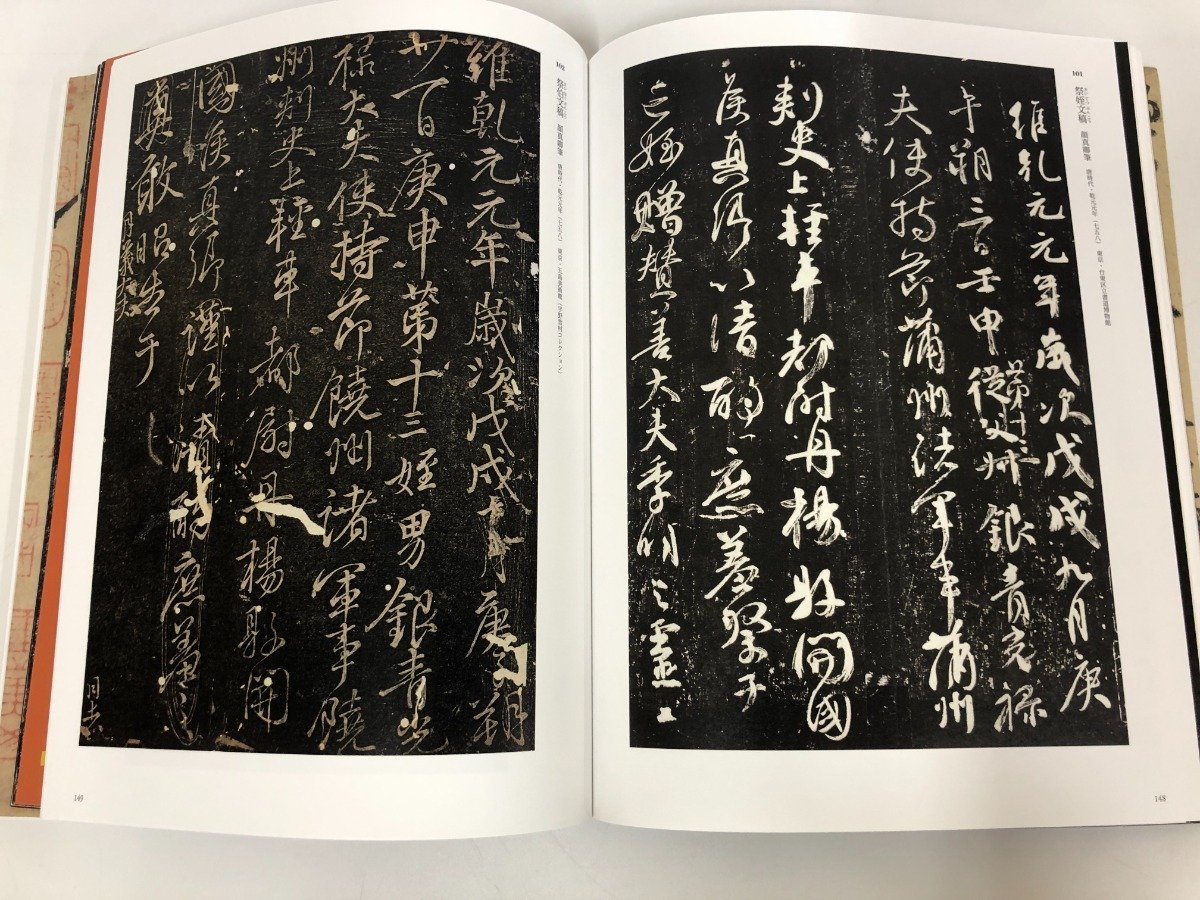 101
祭姪文稿 顔真卿筆 唐時代・乾元元年（七五八） 東京・台東区立書道博物館
維乾元元年歲次戊戌九月庚
午朔三日壬申從父第十三叔銀青光祿
夫使持節蒲州諸軍事蒲州
刺史上輕車都尉丹楊縣開國
侯真卿以清酌庶羞祭于
亡姪贈贊善大夫季明之靈曰
148
102
祭伯文稿 顔真卿筆 唐時代・乾元元年（七五八） 東京・五島美術館（宇野雪村コレクション）
維乾元元年歲次戊戌十月庚午朔
廿一日庚申第十三姪男銀青光
祿大夫使持節饒州諸軍事饒
州刺史上輕車都尉丹楊縣開
國侯真卿謹以清酌庶羞之
奠敢昭告于
149